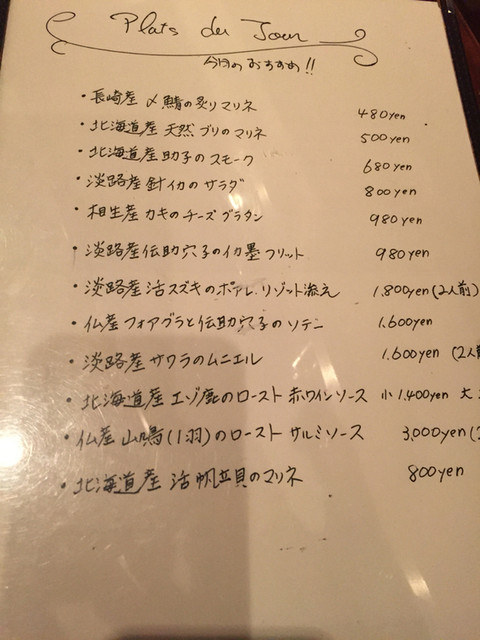 Plats du Jour
今日のおすすめ!!
・長崎産 〆鯖の炙りマリネ 480yen
・北海道産 天然ブリのマリネ 500yen
・北海道産 助子のスモーク 680yen
・淡路産 針イカのサラダ 800yen
・相生産 カキのチーズグラタン 980yen
・淡路産伝助穴子のイカ墨フリット 980yen
・淡路産活スズキのポアレ.リゾット添え 1,800yen(2人前)
・仏産フォアグラと伝助穴子のソテー 1,600yen
・淡路産サワラのムニエル 1,600yen (2人前
・北海道産エゾ鹿のロースト 赤ワインソース 小1,400yen 大
・仏産 山鳩(1羽)のロースト サルミソース 3,000yen(2
・北海道産 活帆立貝のマリネ 800yen